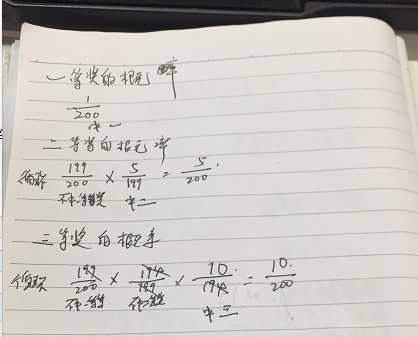 一等奖的概率
1/200
中一
二等奖的概率
199/200 × 5/199 = 5/200
不中一等奖 中二
三等奖的概率
199/200 × 194/199 × 10/194 = 10/200
不中一等奖 不中二等奖 中三